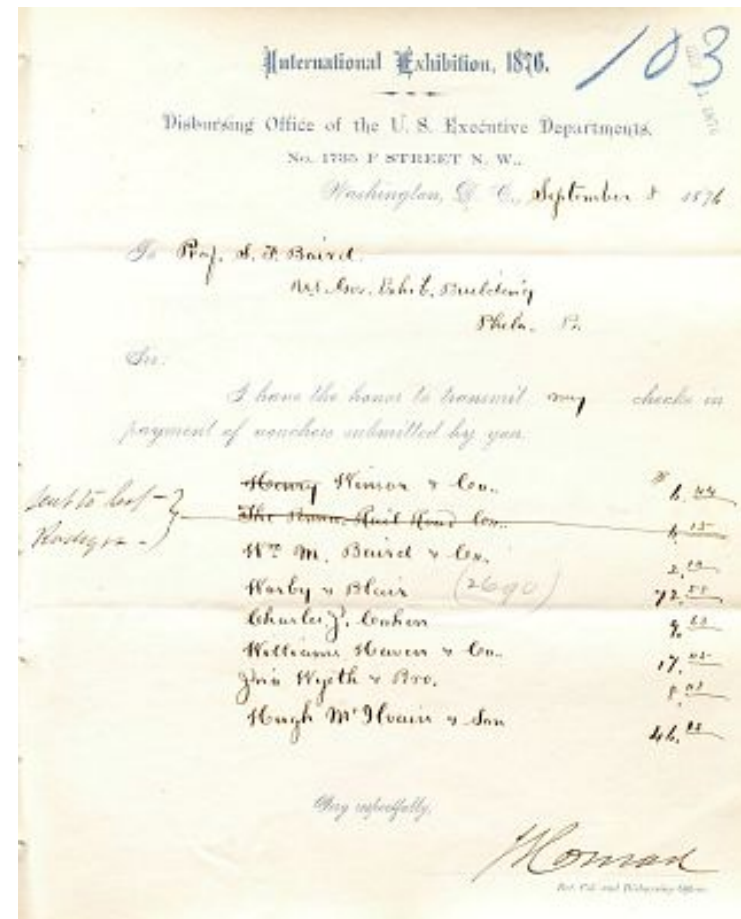 International Exhibition, 1876.
103
1876
Disbursing Office of the U. S. Executive Departments,
No. 1735 F STREET N. W.,
Washington, D. C., September 8 1876
To Prof. S. F. Baird.
Gov. Exhib. Building
Phila. Pa.
Sir:
I have the honor to transmit my checks in
payment of vouchers submitted by you.
Henry Winsor & Co. $ 6.44
sent to Col
The Penna. Rail Road Co. 6.15
Wm M. Baird & Co. 2.
Warby & Blair (2690) 72.
Charles J. Cohen 9.
Williams Haven & Co. 17.
Jno Wyeth & Bro. 8.
Hugh McIlvain & Son 46.
Very respectfully,
Conrad
and Disbursing Officer.